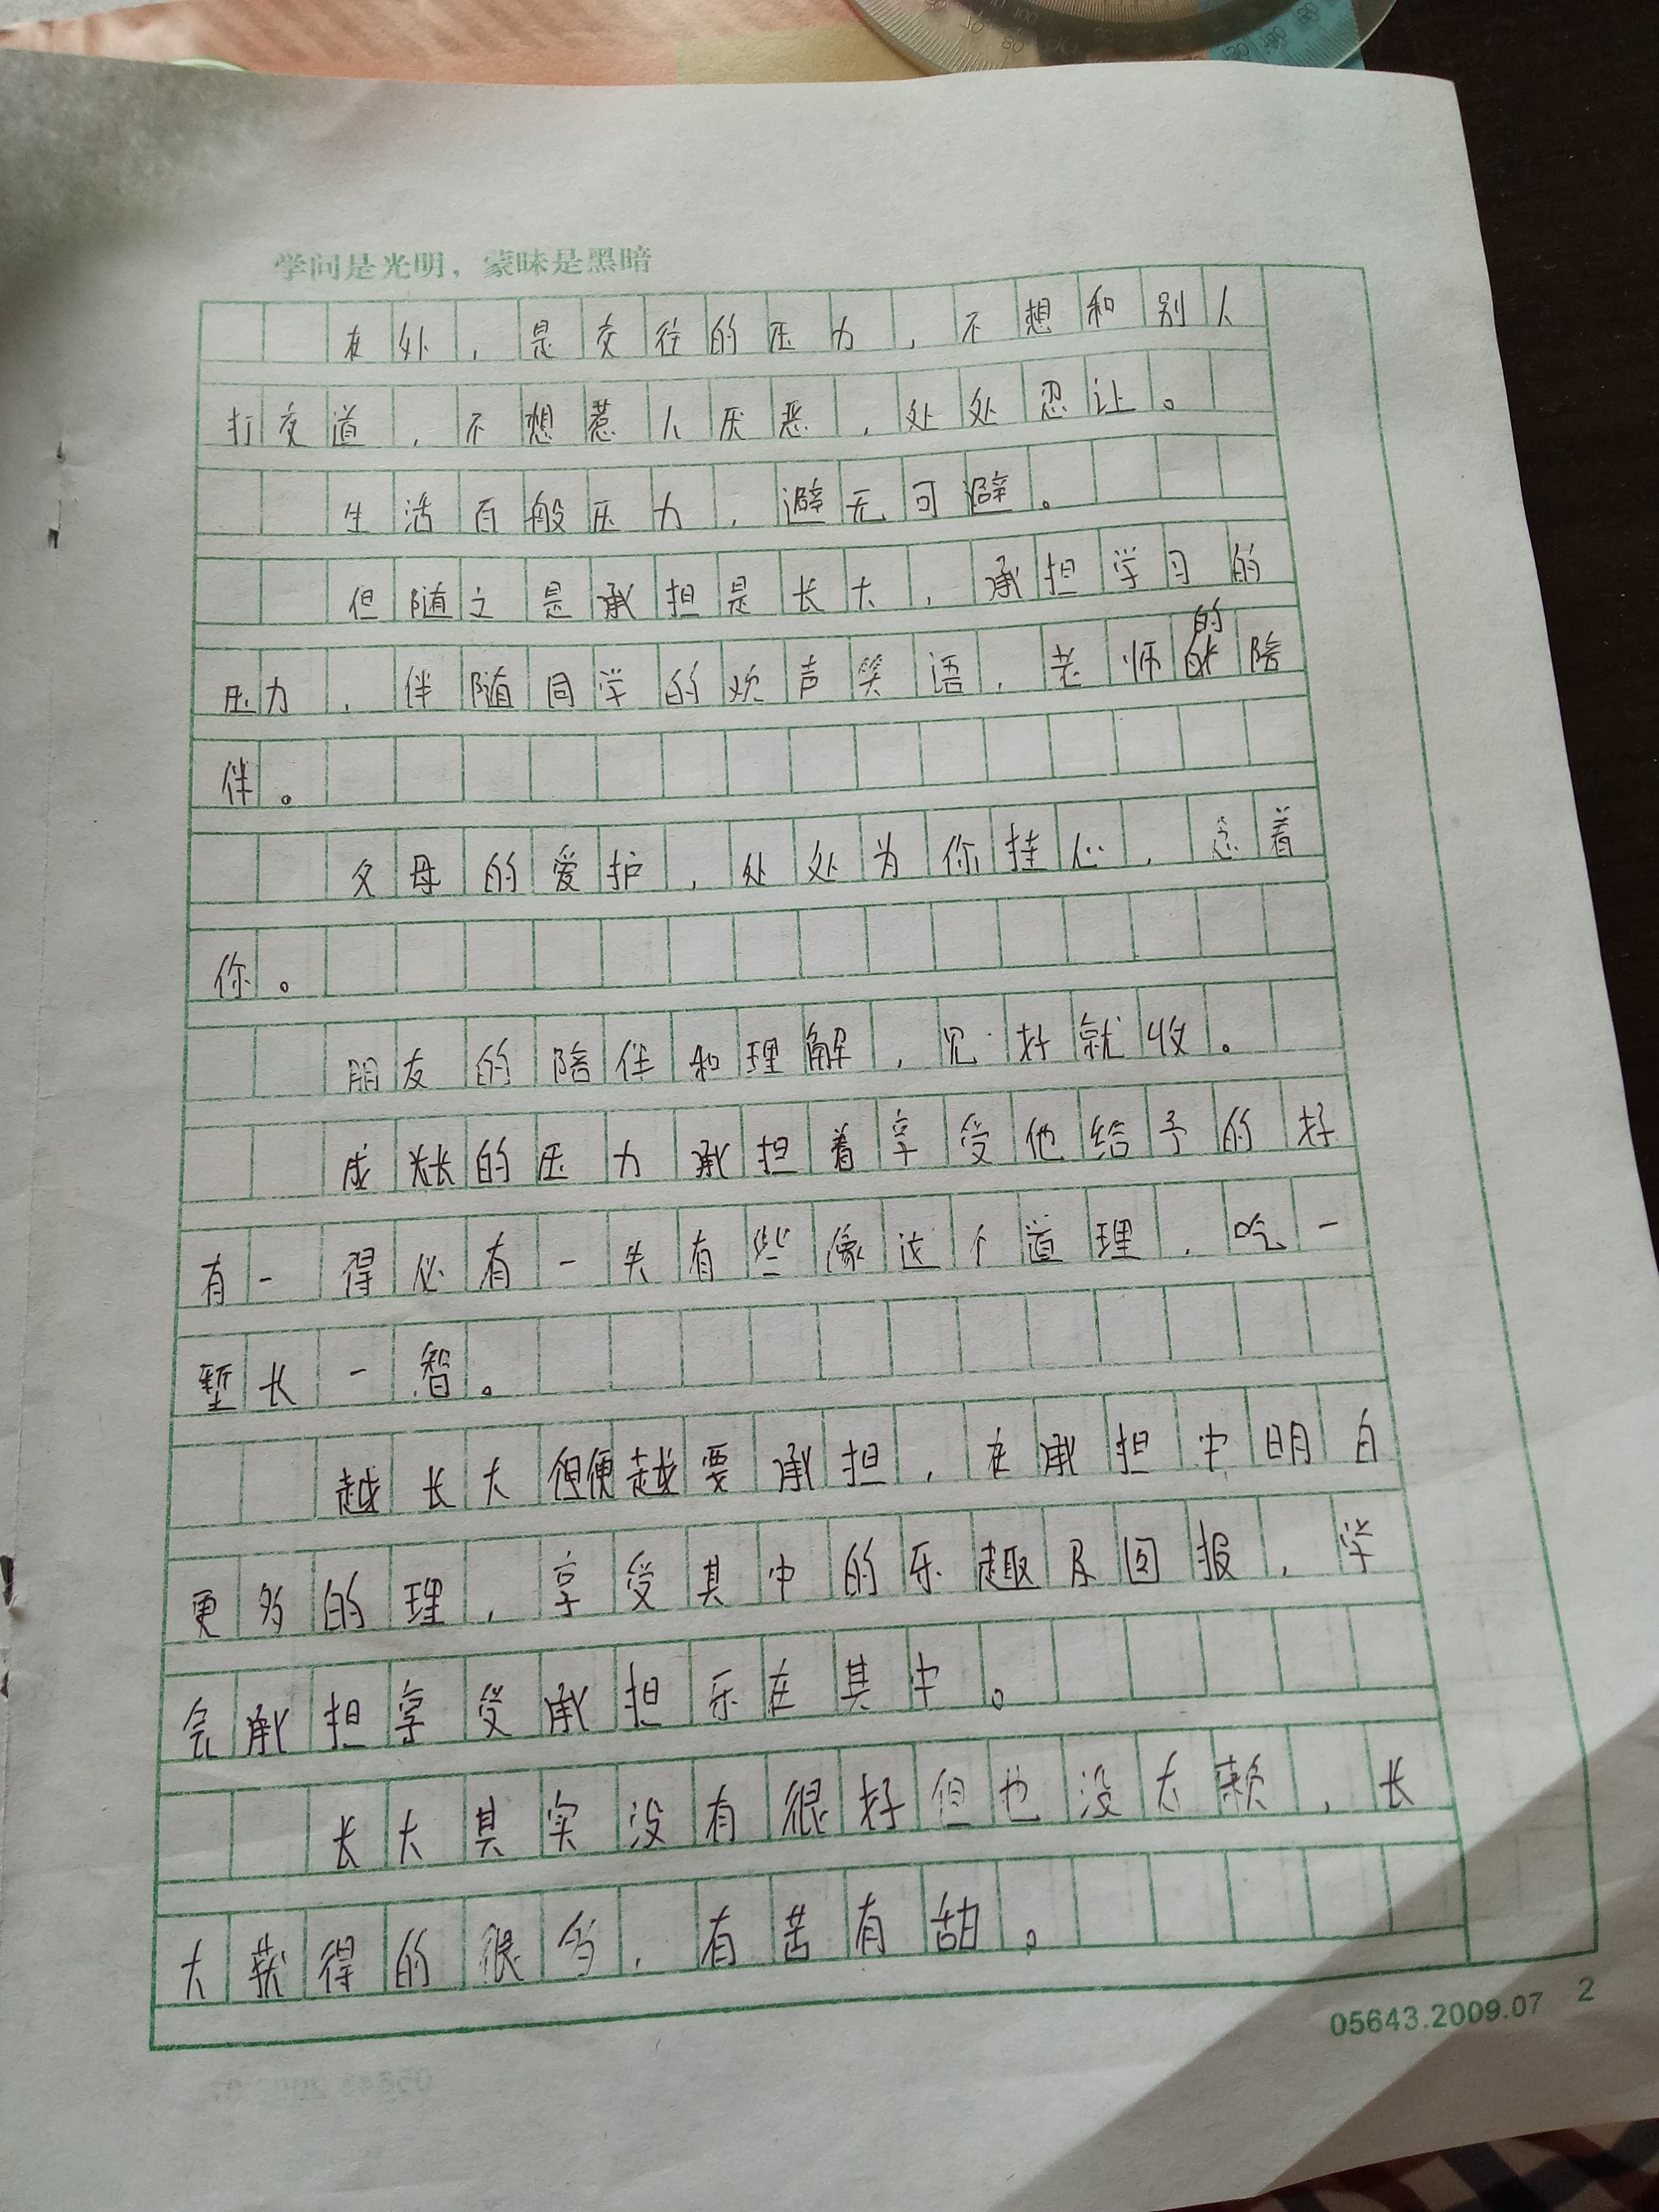 学问是光明，蒙昧是黑暗
在处，是交往的压力，不想和别人
打交道，不想惹人厌恶，处处忍让。
生活百般压力，避无可避。
但随之是承担是长大，承担学习的
压力，伴随同学的欢声笑语，老师的陪
伴。
父母的爱护，处处为你挂心，念着
你。
朋友的陪伴和理解，见好就收。
成长的压力承担着享受他给予的好
有一得必有一失有些像这个道理，吃一
堑长一智。
越长大但便越要承担，在承担中明白
更多的理，享受其中的乐趣及回报，学
会承担享受承担乐在其中。
长大其实没有很好但也没太赖，长
大获得的很多，有苦有甜。
05643.2009.07 2